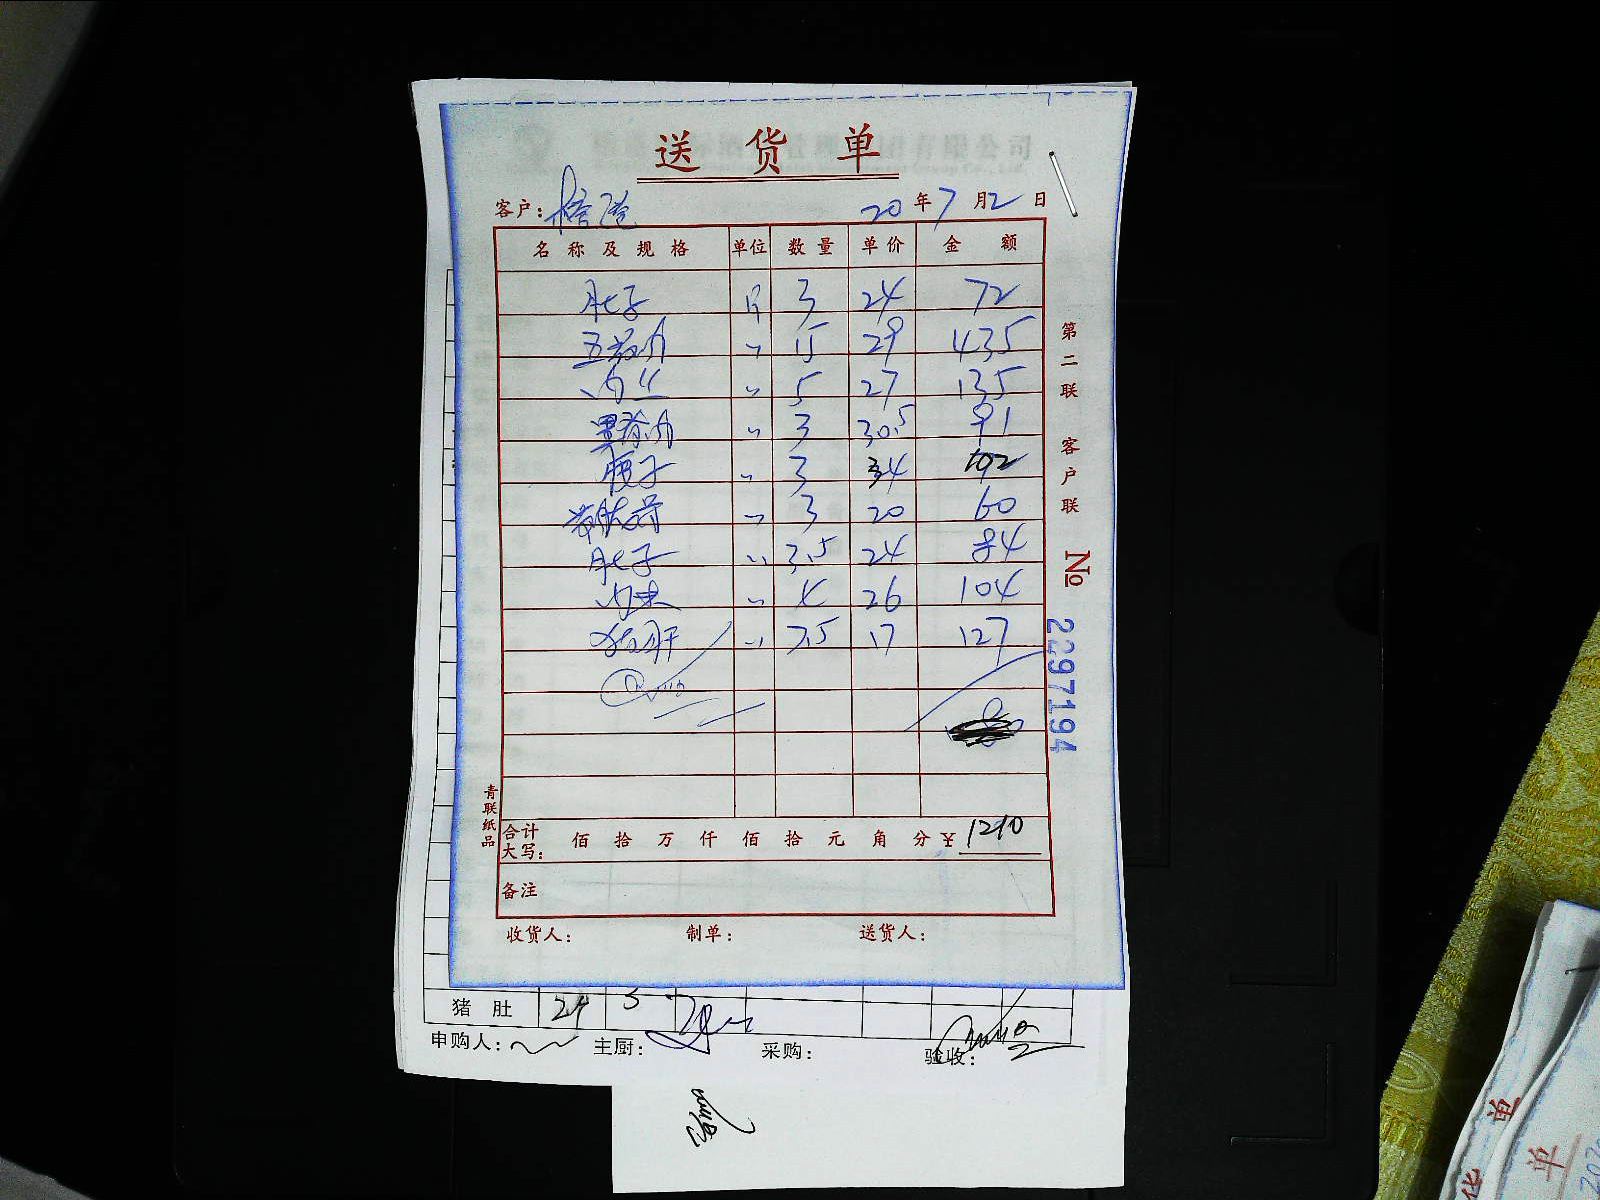 送货单
客户: 20年7月2日
名称及规格 单位 数量 单价 金额
肚子 斤 3 24 72
五花肉 〃 15 29 435
肉丝 〃 5 27 135
里脊肉 〃 3 30.5 91
腰子 〃 3 34 102
〃 3 20 60
肚子 〃 3.5 24 84
肉末 〃 4 26 104
猪肝 〃 7.5 17 127
合计大写: 佰 拾 万 仟 佰 拾 元 角 分 ¥ 1210
备注
收货人: 制单: 送货人:
第二联 客户联
No 2297194
青联纸品
猪肚 24 3
申购人: 主厨: 采购: 验收:
单
单